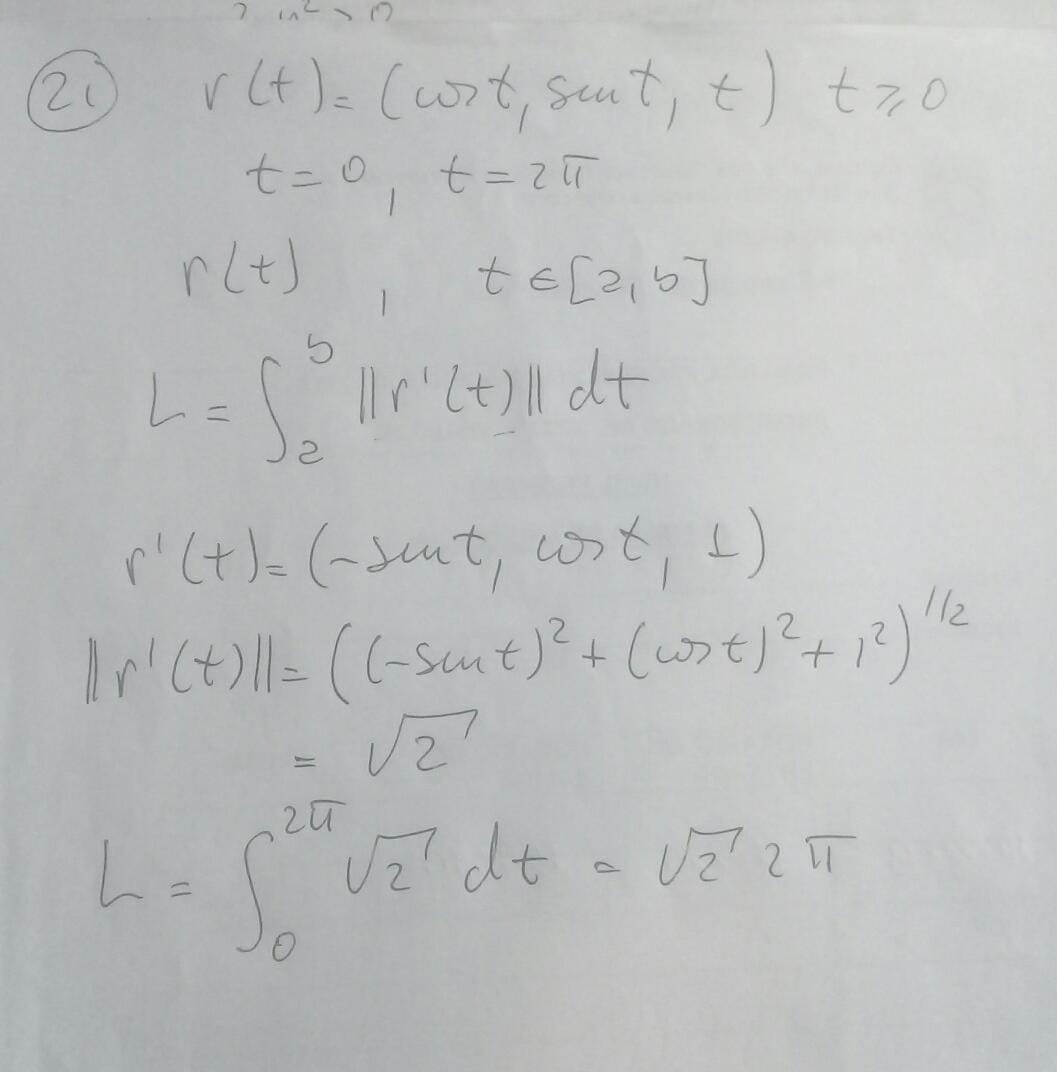 21 r(t) = (cos t, sen t, t) t ⩾ 0
t = 0, t = 2π
r(t) , t ∈ [a, b]
L = ∫_a^b ||r'(t)|| dt
r'(t) = (-sen t, cos t, 1)
||r'(t)|| = ((-sen t)² + (cos t)² + 1²)^1/2
= √2
L = ∫_0^2π √2 dt = √2 2π